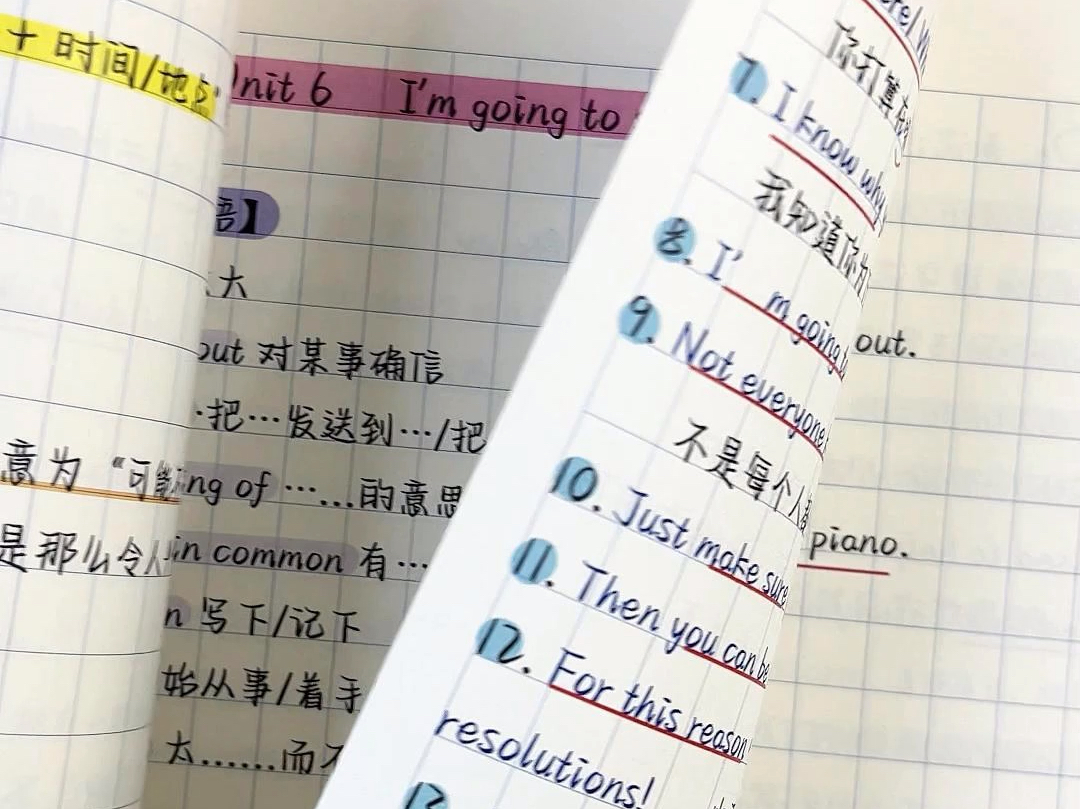 + 时间/地
意为 “可能
是那么令人
Unit 6 I'm going to
语】
大
out 对某事确信
…把…发送到…/把
ing of ……的意思
in common 有…
n 写下/记下
始从事/着手
太……而不
你打算在
7. I know why
我知道你为
8. I'm going to
9. Not everyone
不是每个人都
10. Just make sure
11. Then you can be
12. For this reason
resolutions!
13
out.
piano.